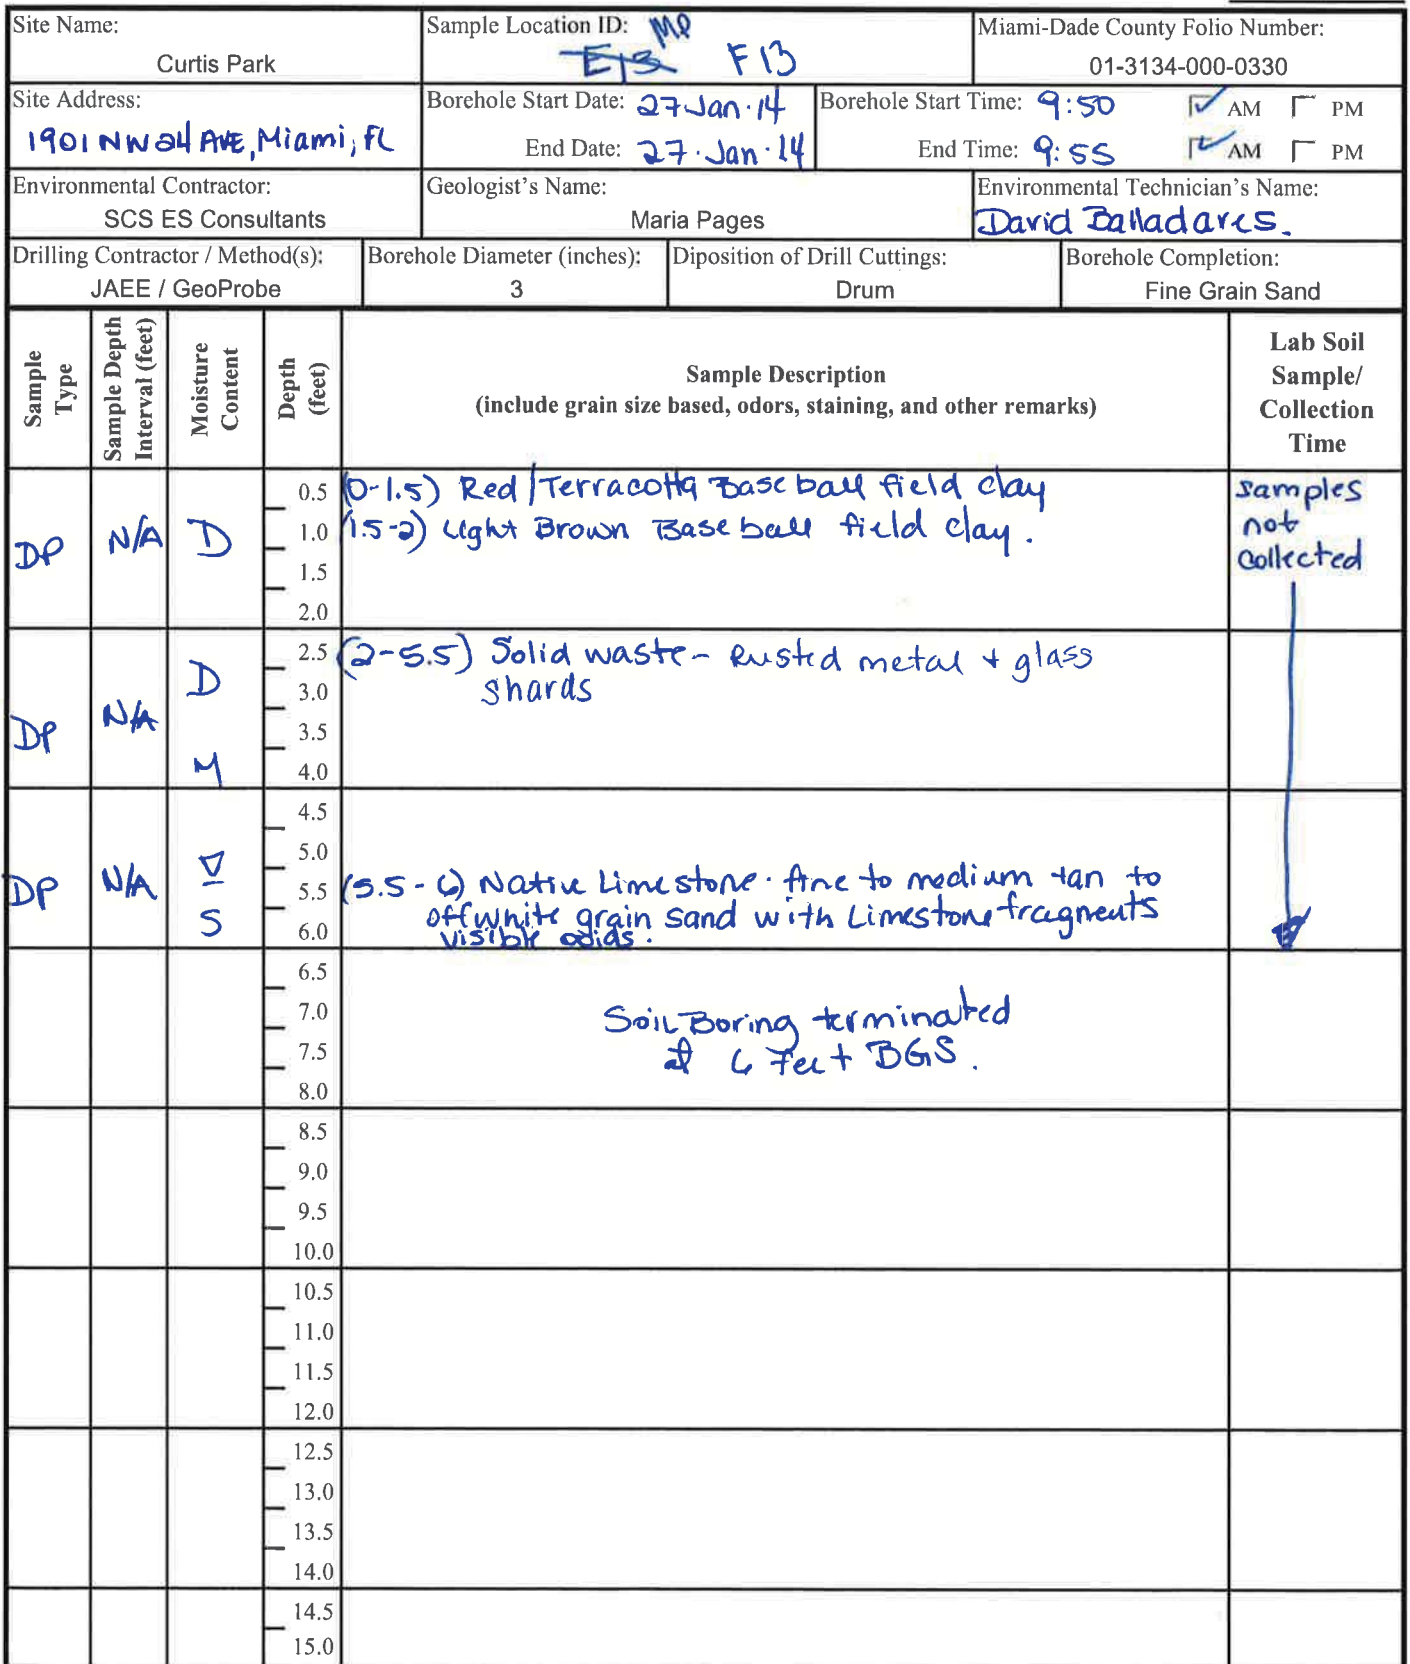 Site Name:
Curtis Park
Sample Location ID: MP
E13 F13
Miami-Dade County Folio Number:
01-3134-000-0330
Site Address:
1901 NW 24 AVE, Miami, FL
Borehole Start Date: 27 Jan. 14
End Date: 27. Jan. 14
Borehole Start Time: 9:50 AM PM
End Time: 9:55 AM PM
Environmental Contractor:
SCS ES Consultants
Geologist's Name:
Maria Pages
Environmental Technician's Name:
David Balladares.
Drilling Contractor / Method(s):
JAEE / GeoProbe
Borehole Diameter (inches):
3
Diposition of Drill Cuttings:
Drum
Borehole Completion:
Fine Grain Sand
Sample
Type
Sample Depth
Interval (feet)
Moisture
Content
Depth
(feet)
Sample Description
(include grain size based, odors, staining, and other remarks)
Lab Soil
Sample/
Collection
Time
DP
N/A
D
0.5
1.0
1.5
2.0
(0-1.5) Red/Terracotta Baseball field clay
(1.5-2) Light Brown Baseball field clay.
samples
not
collected
DP
N/A
D
M
2.5
3.0
3.5
4.0
(2-5.5) Solid waste - Rusted metal + glass
shards
DP
N/A
∇
S
4.5
5.0
5.5
6.0
(5.5-6) Native Limestone. fine to medium tan to
off white grain sand with Limestone fragments
visible ooids.
6.5
7.0
7.5
8.0
Soil Boring terminated
at 6 Feet BGS.
8.5
9.0
9.5
10.0
10.5
11.0
11.5
12.0
12.5
13.0
13.5
14.0
14.5
15.0